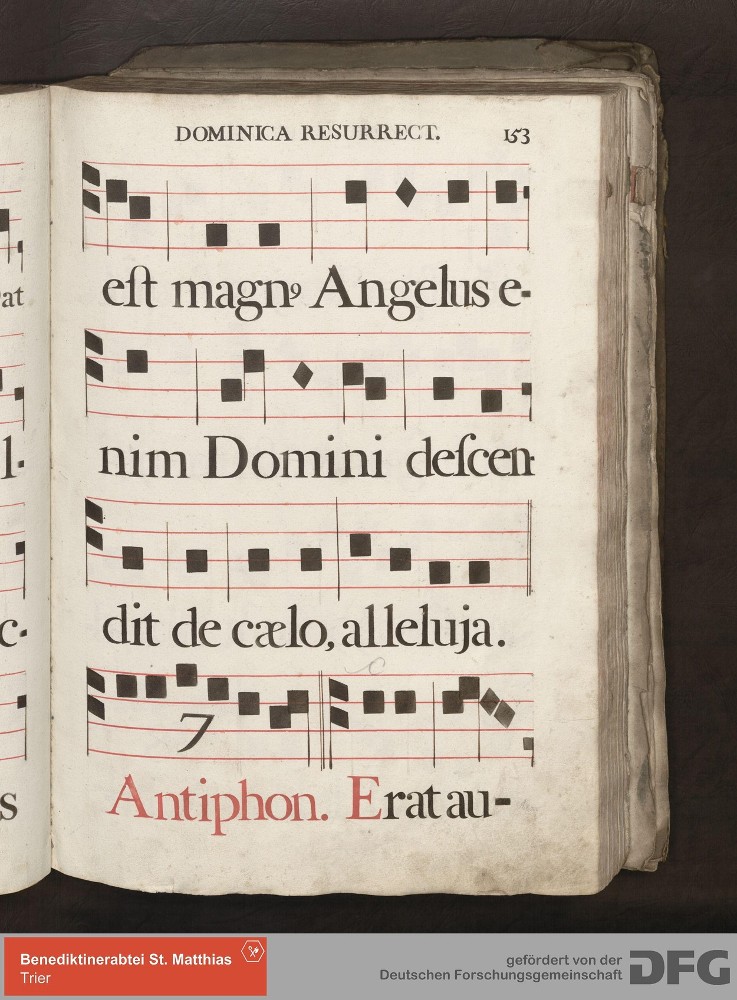 DOMINICA RESURRECT. 153
at
eſt magnꝯ Angelus e-
l-
nim Domini deſcen-
c-
dit de cælo, alleluja.
7
s
Antiphon. Erat au-
Benediktinerabtei St. Matthias
Trier
gefördert von der
Deutschen Forschungsgemeinschaft
DFG